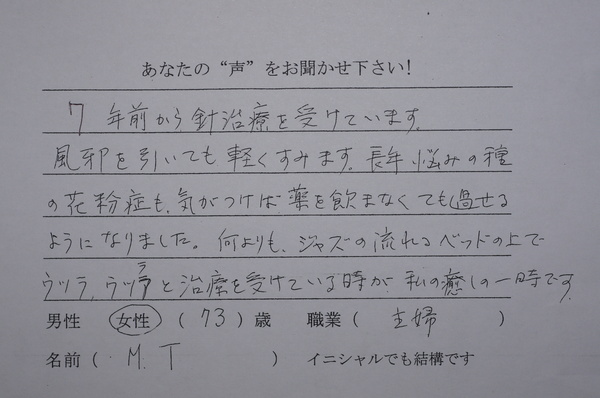 あなたの “声” をお聞かせ下さい!
7年前から針治療を受けています。
風邪を引いても軽くすみます。長年悩みの種
の花粉症も、気がつけば薬を飲まなくても過せる
ようになりました。何よりも、ジャズの流れるベッドの上で
ウツラ、ウツラと治療を受けている時が私の癒しの一時です。
男性 女性 (73) 歳 職業 ( 主婦 )
名前 ( M. T ) イニシャルでも結構です